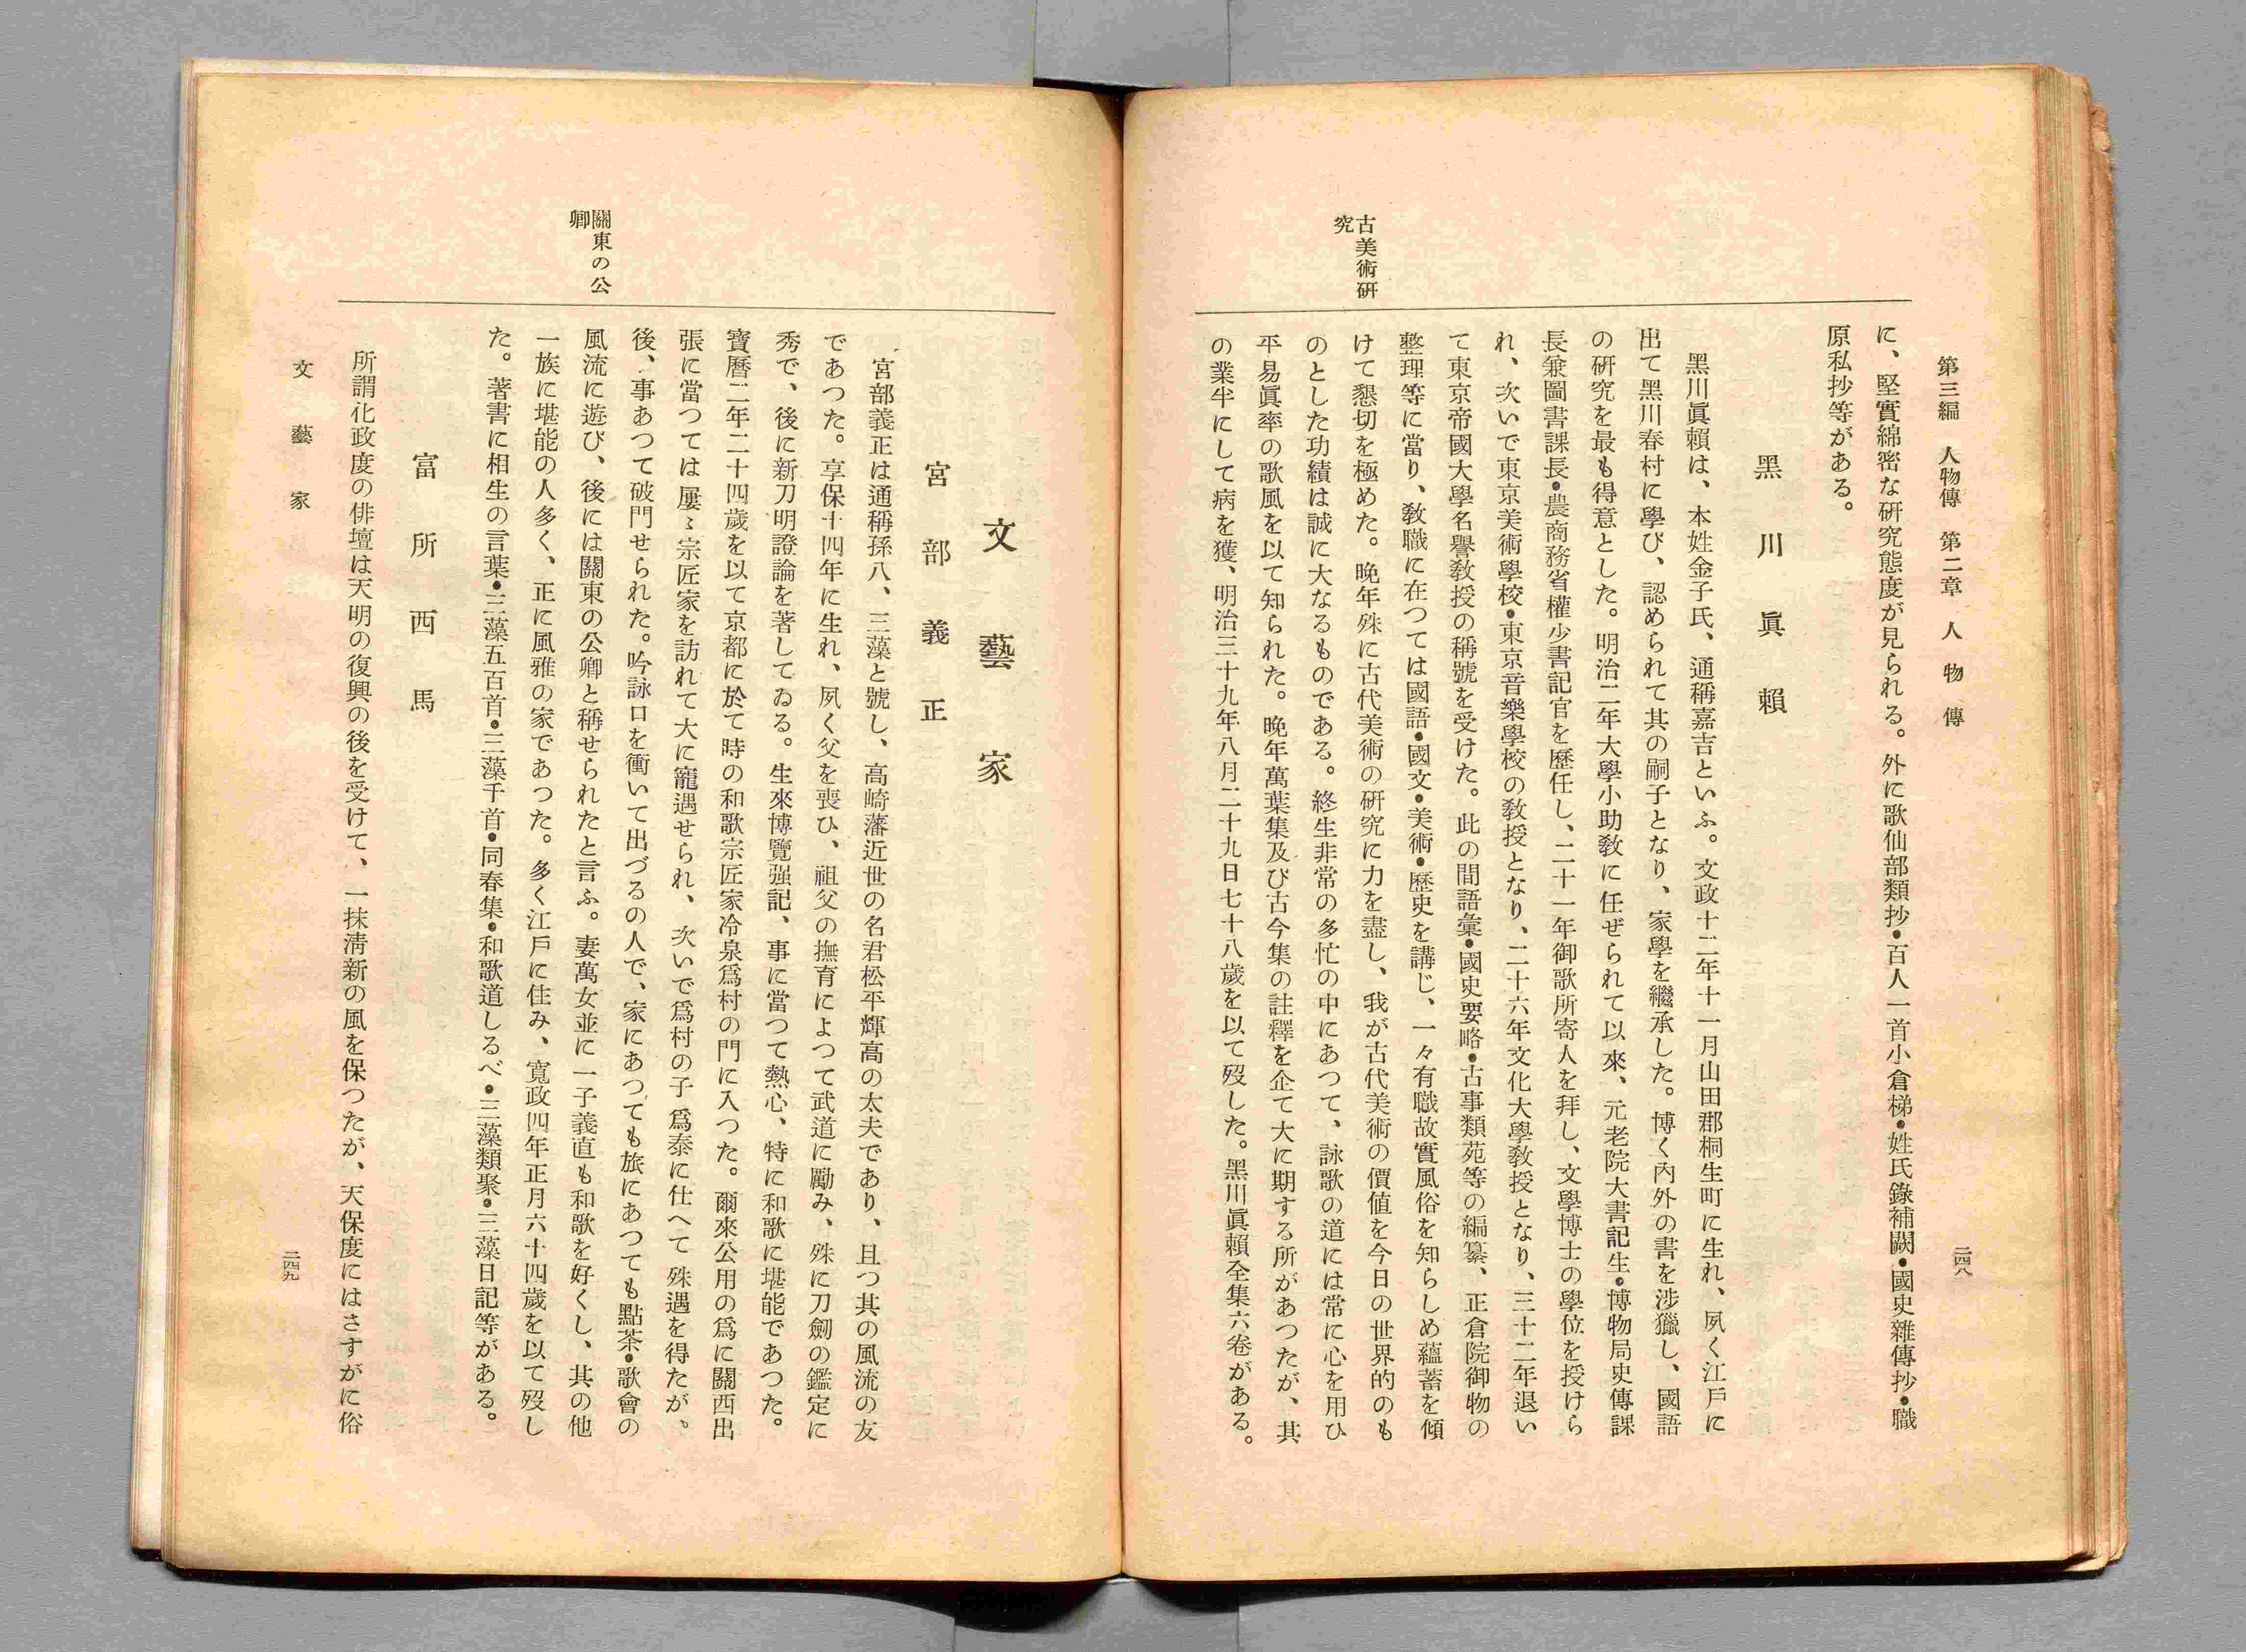 第三編　人物傳　第二章　人物傳
二四八
に、堅實綿密な研究態度が見られる。外に歌仙部類抄・百人一首小倉梯・姓氏錄補闕・國史雜傳抄・職
原私抄等がある。
黑川眞賴
黑川眞賴は、本姓金子氏、通稱嘉吉といふ。文政十二年十一月山田郡桐生町に生れ、夙く江戶に
出て黑川春村に學び、認められて其の嗣子となり、家學を繼承した。博く內外の書を涉獵し、國語
の研究を最も得意とした。明治二年大學小助敎に任ぜられて以來、元老院大書記生・博物局史傳課
長兼圖書課長・農商務省權少書記官を歷任し、二十一年御歌所寄人を拜し、文學博士の學位を授けら
れ、次いで東京美術學校・東京音樂學校の敎授となり、二十六年文化大學敎授となり、三十二年退い
て東京帝國大學名譽敎授の稱號を受けた。此の間語彙・國史要略・古事類苑等の編纂、正倉院御物の
整理等に當り、敎職に在つては國語・國文・美術・歷史を講じ、一々有職故實風俗を知らしめ蘊蓄を傾
古美術研
究
けて懇切を極めた。晚年殊に古代美術の研究に力を盡し、我が古代美術の價値を今日の世界的のも
のとした功績は誠に大なるものである。終生非常の多忙の中にあつて、詠歌の道には常に心を用ひ
平易眞率の歌風を以て知られた。晚年萬葉集及び古今集の註釋を企て大に期する所があつたが、其
の業半にして病を獲、明治三十九年八月二十九日七十八歲を以て歿した。黑川眞賴全集六卷がある。
文藝家
宮部義正
宮部義正は通稱孫八、三藻と號し、高崎藩近世の名君松平輝高の太夫であり、且つ其の風流の友
であつた。享保十四年に生れ、夙く父を喪ひ、祖父の撫育によつて武道に勵み、殊に刀劍の鑑定に
秀で、後に新刀明證論を著してゐる。生來博覽强記、事に當つて熱心、特に和歌に堪能であつた。
寶曆二年二十四歲を以て京都に於て時の和歌宗匠家冷泉爲村の門に入つた。爾來公用の爲に關西出
張に當つては屢〻宗匠家を訪れて大に寵遇せられ、次いで爲村の子爲泰に仕へて殊遇を得たが、
後、事あつて破門せられた。吟詠口を衝いて出づるの人で、家にあつても旅にあつても點茶・歌會の
關東の公
卿
風流に遊び、後には關東の公卿と稱せられたと言ふ。妻萬女並に一子義直も和歌を好くし、其の他
一族に堪能の人多く、正に風雅の家であつた。多く江戶に住み、寬政四年正月六十四歲を以て歿し
た。著書に相生の言葉・三藻五百首・三藻千首・同春集・和歌道しるべ・三藻類聚・三藻日記等がある。
富所西馬
所謂化政度の俳壇は天明の復興の後を受けて、一抹淸新の風を保つたが、天保度にはさすがに俗
文藝家
二四九